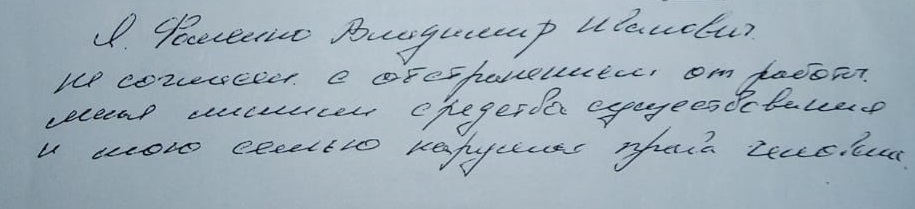 Я. Фоменко Владимир Иванович.
не согласен с отстранением от работы.
меня лишили средства существования
и мою семью нарушая права человека